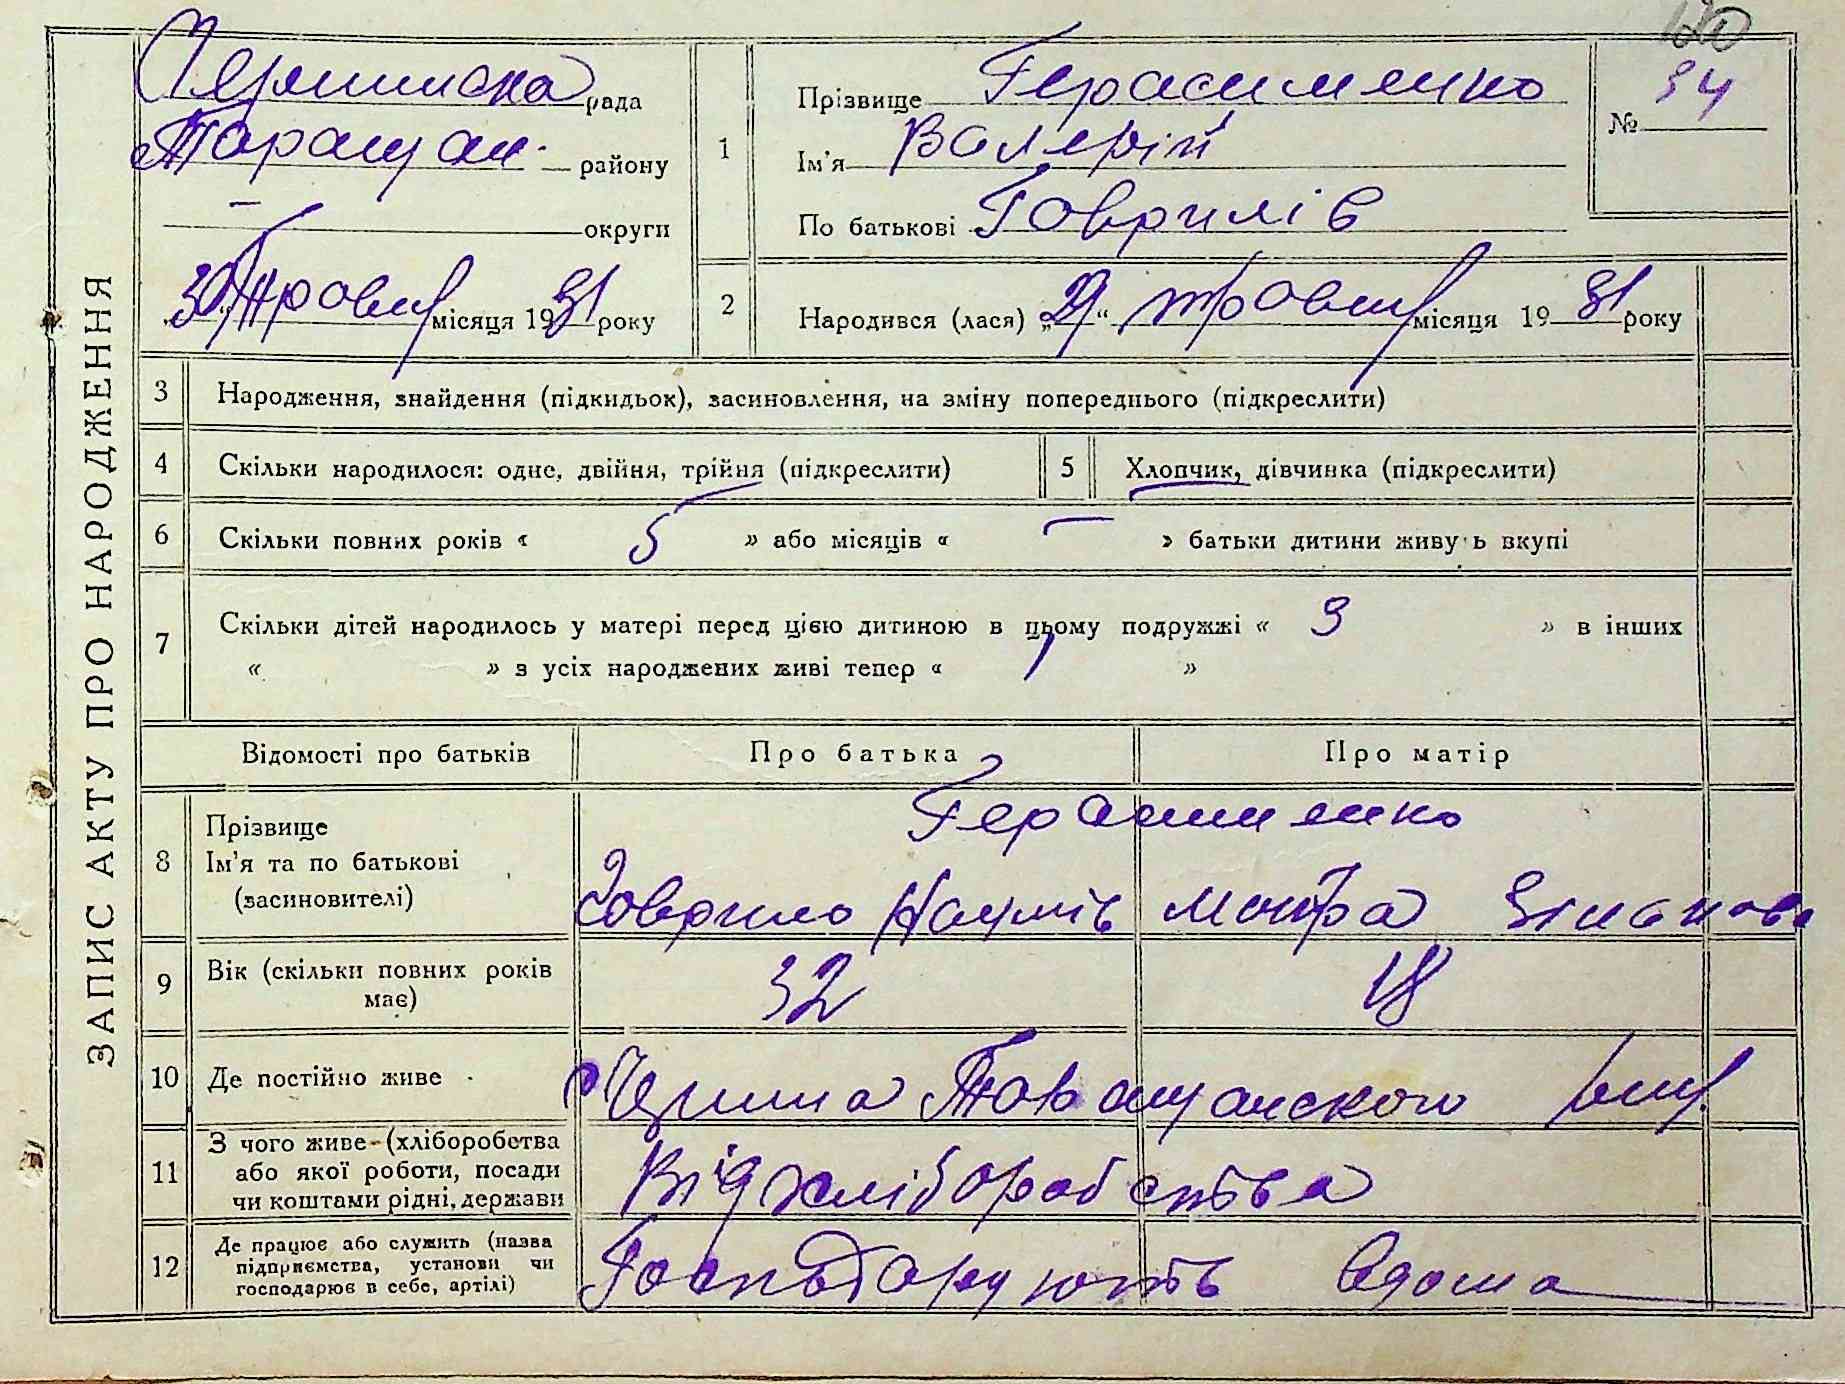 ЗАПИС АКТУ ПРО НАРОДЖЕННЯ
рада
Таращан. району
– округи
30 Травня місяця 1931 року
1
Прізвище Герасименко
Ім'я Валерій
По батькові Гаврилів
№ 34
2
Народився (лася) „29“ травня місяця 1931 року
3 Народження, знайдення (підкидьок), засиновлення, на зміну попереднього (підкреслити)
4 Скільки народилося: одне, двійня, трійня (підкреслити)
5 Хлопчик, дівчинка (підкреслити)
6 Скільки повних років « 5 » або місяців « – » батьки дитини живуть вкупі
7 Скільки дітей народилось у матері перед цією дитиною в цьому подружжі « 3 » в інших
« » з усіх народжених живі тепер « 1 »
Відомості про батьків Про батька Про матір
8 Прізвище
Ім'я та по батькові
(засиновителі)
Герасименко
Гаврило Наумів Мотра Зінькова
9 Вік (скільки повних років
має)
32 28
10 Де постійно живе
Таращанського
11 З чого живе (хліборобства
або якої роботи, посади
чи коштами рідні, держави
Від хліборобства
12 Де працює або служить (назва
підприємства, установи чи
господарює в себе, артілі)
Господарують вдома